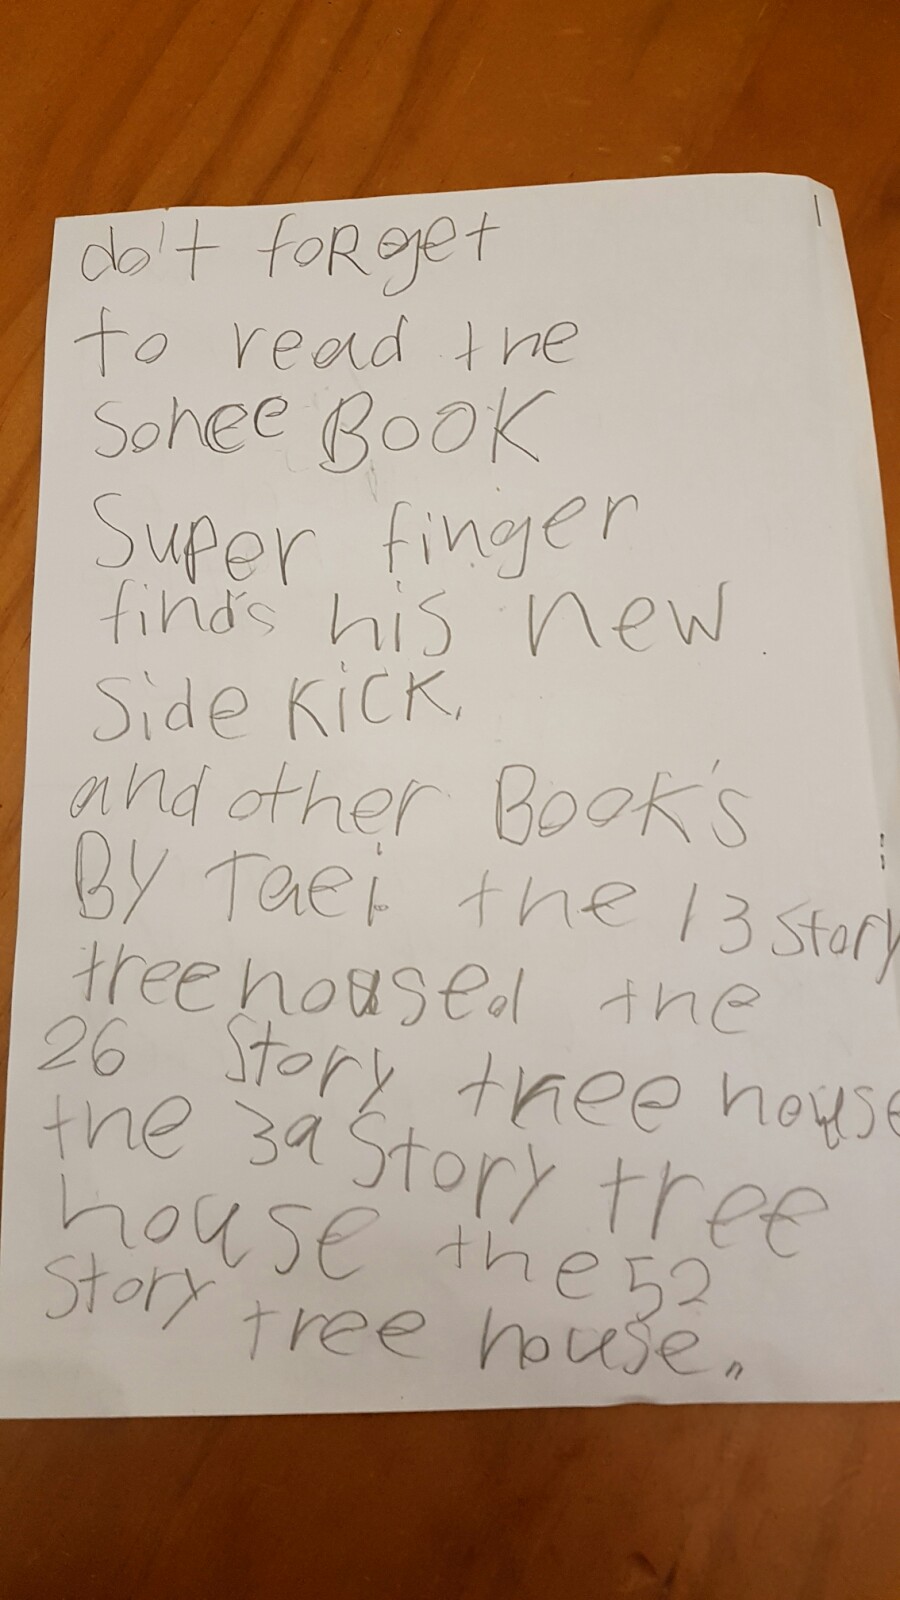 do't foRget
to read the
Sohee BOOK
Super finger
finds his new
Side KicK.
and other Book's
BY Taei. the 13 story
treehoused the
26 Story tree house
the 39 Story tree
house the 52
Story tree house.